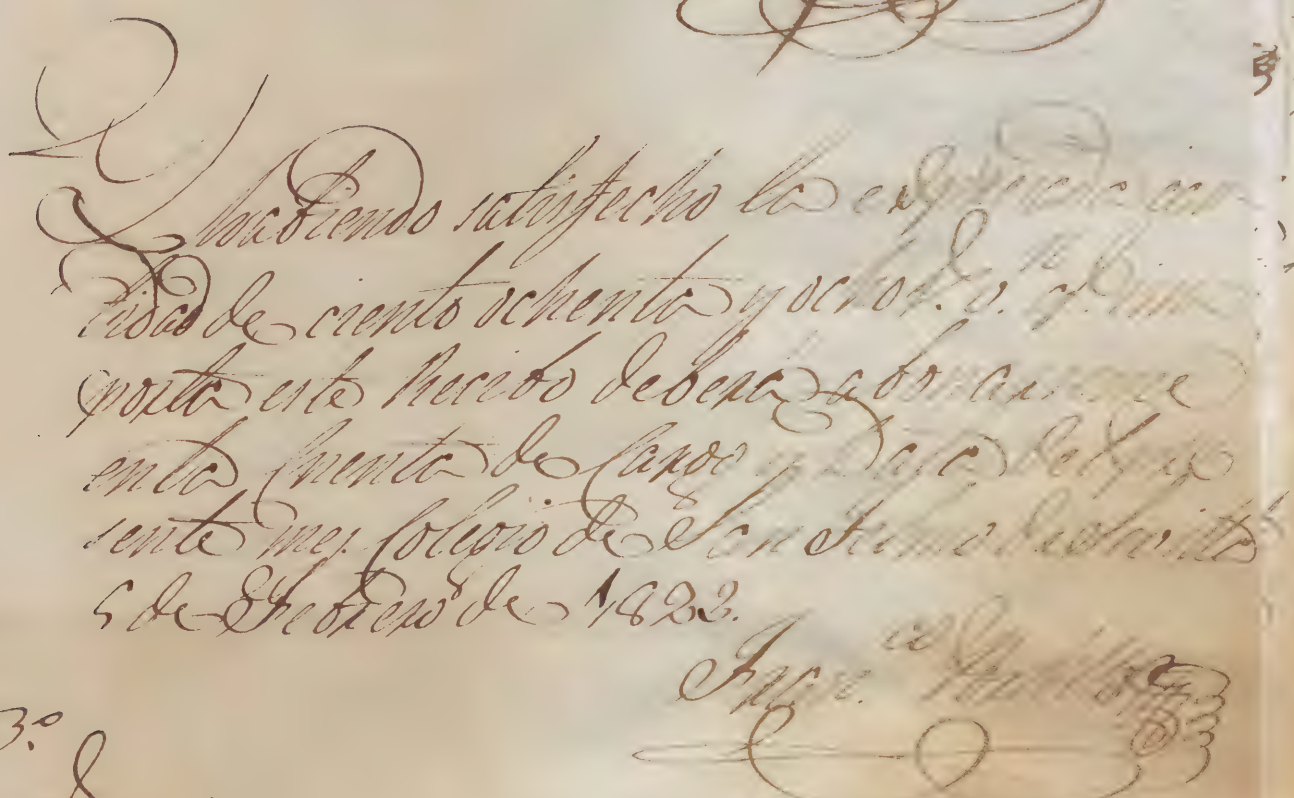 habiendo satisfecho la expresada can-
tidad de ciento ochenta y ocho r.^s v.^n q.^e im
porta este Recibo deberá abonarseme
en la Cuenta de Cargo y Data del pre
sente mes. Colegio de San Telmo
5 de Febrero de 1822.
Fran.^co
3.º